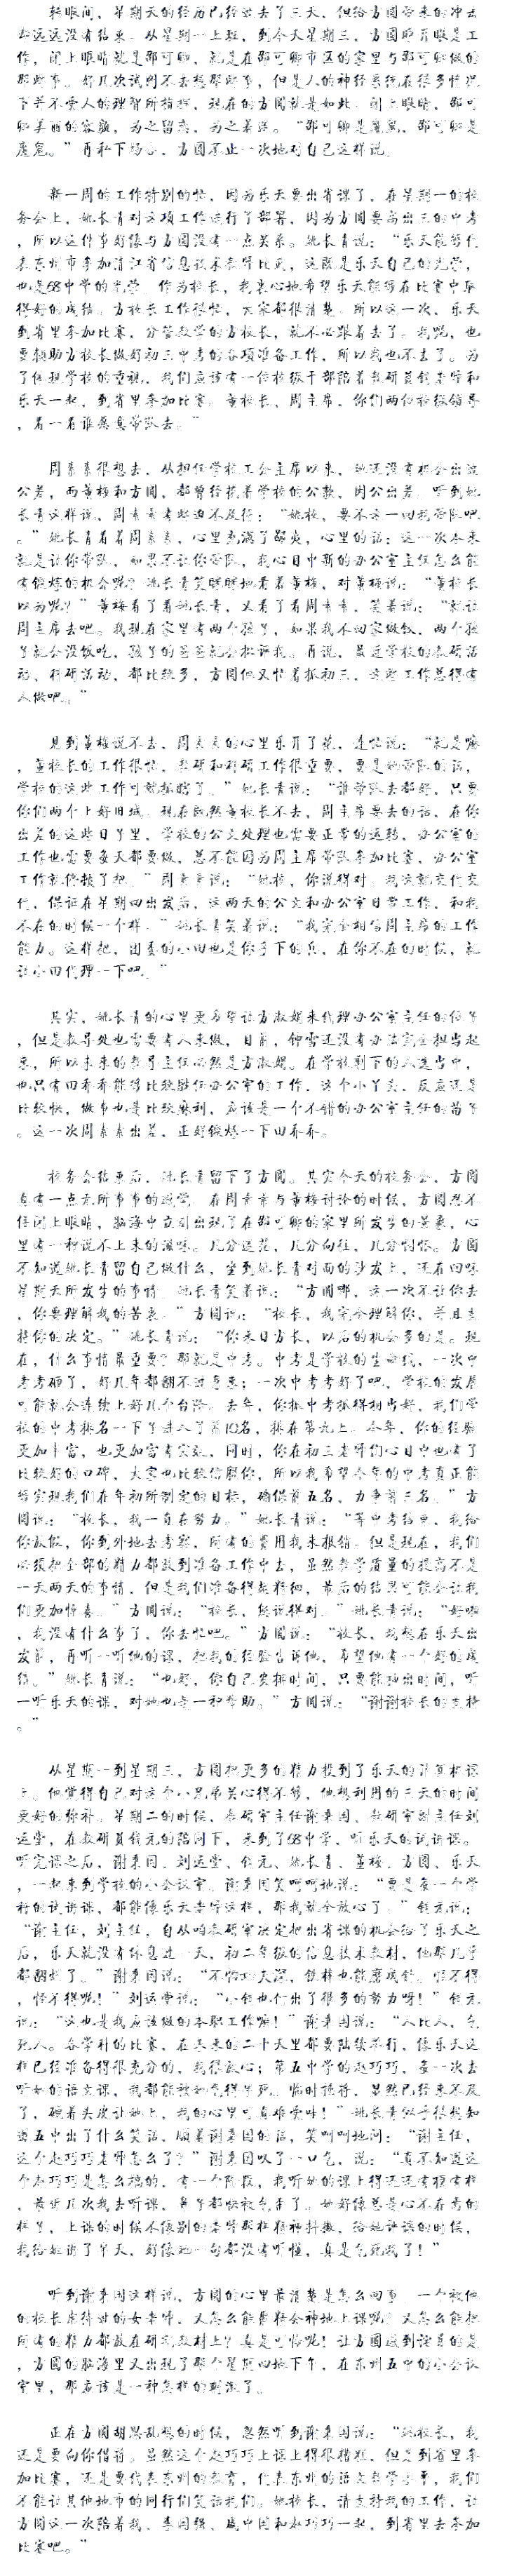 转眼间，星期天的经历已经过去了三天，但给方圆带来的冲击
却远远没有结束。从星期一上班，到今天星期三，方圆睁开眼是工
作，闭上眼睛就是邵可卿，就是在邵可卿市区的家里与邵可卿做的
那些事。好几次试图不去想那些事，但是人的神经系统在很多情况
下并不受人的理智所指挥，现在的方圆就是如此，闭上眼睛，邵可
卿美丽的容颜，为之留恋，为之着迷。“邵可卿是魔鬼，邵可卿是
魔鬼。”再私下场合，方圆不止一次地对自己这样说。

新一周的工作特别的忙，因为乐天要出省课了，在星期一的校
务会上，姚长青对这项工作进行了部署，因为方圆要离出三的中考
，所以这件事好像与方圆没有一点关系。姚长青说：“乐天能够代
表东州市参加清江省信息技术优质课比赛，这既是乐天自己的光荣，
也是68中学的光荣。作为校长，我衷心地希望乐天能够在比赛中取
得好的成绩。方校长工作很忙，大家都很清楚，所以这一次，乐天
到省里参加比赛，分管教学的方校长，就不必跟着去了。我呢，也
要辅助方校长做好初三中考的各项准备工作，所以我也不去了。为
了体现学校的重视，我们应该有一位校级干部陪着教研员钱老师和
乐天一起，到省里参加比赛。董校长、周主席，你们两位校级领导
，看一看谁愿意带队去。”

周素素很想去，从担任学校工会主席以来，她还没有机会出过
公差，而董梅和方圆，都曾经花着学校的公款，因公出差。听到姚
长青这样说，周素素有些迫不及待：“姚校，要不这一回我带队吧
。”姚长青看着周素素，心里充满了鄙夷，心里的话：这一次本来
就是让你带队，如果不让你带队，我心目中新的办公室主任怎么能
有锻炼的机会呢？姚长青笑眯眯地看着董梅，对董梅说：“董校长
以为呢？”董梅看了看姚长青，又看了看周素素，笑着说：“就让
周主席去吧。我现在家里有两个孩子，如果我不回家做饭，两个孩
子就会没饭吃，孩子的爸爸就会批评我。再说，最近学校的教研活
动、科研活动，都比较多，方圆他又忙着抓初三，这些工作总得有
人做吧。”

见到董梅说不去，周素素的心里乐开了花，连忙说：“就是嘛
，董校长的工作很忙，教研和科研工作很重要，要是她带队的话，
学校的这些工作可就抓瞎了。”姚长青说：“谁带队去都好，只要
你们两个上好旧城。现在既然董校长不去，周主席要去的话，在你
出差的这些日子里，学校的公文处理也需要正常的运转，办公室的
工作也需要每天都要做，总不能因为周主席带队参加比赛，办公室
工作就停顿了把。”周素素说：“姚校，你说得对。我这就交代交
代，保证在星期四出发后，这两天的公文和办公室日常工作，和我
不在的时候一个样。”姚长青笑着说：“我完全相信周主席的工作
能力。这样把，团委的小田也是你手下的兵，在你不在的时候，就
让小田代理一下吧。”

其实，姚长青的心里更希望让方淑娴来代理办公室主任的位子
，但是教导处也需要有人来做，目前，钟雷还没有办法完全担当起
来，所以未来的教导主任必然是方淑娴。在学校剩下的人选当中，
也只有田乔乔能够比较胜任办公室的工作，这个小丫头，反应还是
比较快，做事也是比较麻利，应该是一个不错的办公室主任的苗子
。这一次周素素出差，正好锻炼一下田乔乔。

校务会结束后，姚长青留下了方圆。其实今天的校务会，方圆
真有一点无所事事的感觉。在周素素与董梅讨论的时候，方圆忍不
住闭上眼睛，脑海中立刻出现了在邵可卿的家里所发生的景象，心
里有一种说不上来的滋味。几分迷茫，几分向往，几分惆怅。方圆
不知道姚长青留自己做什么，坐到姚长青对面的沙发上，还在回味
星期天所发生的事情。姚长青笑着说：“方圆哪，这一次不让你去
，你要理解我的苦衷。”方圆说：“校长，我完全理解你，并且支
持你的决定。”姚长青说：“你来日方长，以后的机会多的是。现
在，什么事情最重要？那就是中考。中考是学校的生命线，一次中
考考砸了，好几年都翻不过身来；一次中考考好了吧，学校的发展
可能就会连续上好几个台阶。去年，你抓中考抓得相当好，我们学
校的中考排名一下子进入了前10名，排在第九上。今年，你的经验
更加丰富，也更加富有实效，同时，你在初三老师们心目中也有了
比较好的口碑，大家也比较信服你，所以我希望今年的中考真正能
够实现我们在年初所制定的目标，确保前五名，力争前三名。”方
圆说：“校长，我一直在努力。”姚长青说：“等中考结束，我给
你放假，你到外地去考察，所有的费用我来报销。但是现在，我们
必须把全部的精力都放到准备工作中去，虽然教学质量的提高不是
一天两天的事情，但是我们准备得越精细，最后的结果可能会让我
们更加惊喜。”方圆说：“校长，您说得对。”姚长青说：“好啦
，我没有什么事了，你去忙吧。”方圆说：“校长，我想在乐天出
发前，再听一听他的课，把我的经验告诉他，希望他有一个好的成
绩。”姚长青说：“也好，你自己安排时间，只要能抽出时间，听
一听乐天的课，对他也是一种帮助。”方圆说：“谢谢校长的支持
。”

从星期一到星期三，方圆把更多的精力投到了乐天的计算机课
上。他觉得自己对这个小兄弟关心得不够，他想利用的三天的时间
更好的弥补。星期二的时候，教研室主任谢秉国、教研室副主任刘
运堂，在教研员钱元的陪同下，来到了68中学，听乐天的试讲课。
听完课之后，谢秉国、刘运堂、钱元、姚长青、董梅、方圆、乐天
，一起来到学校的小会议室。谢秉国笑呵呵地说：“要是每一个学
科的试讲课，都能像乐天老师这样，那我就全放心了。”钱元说：
“谢主任，刘主任，自从咱教研室决定把出省课的机会给了乐天之
后，乐天就没有休息过一天，初二年级的信息技术教材，他那几乎
都翻烂了。”谢秉国说：“不怕功夫深，铁杵也能磨成针。怪不得
，怪不得呢！”刘运堂说：“小钱也付出了很多的努力呀！”钱元
说：“这也是我应该做的本职工作嘛！”谢秉国说：“人比人，气
死人。各学科的比赛，在未来的二十天里都要陆续举行，像乐天这
样已经准备得很充分的，我很放心；第五中学的赵巧巧，每一次去
听她的语文课，我都能被她气得半死。临时换将，显然已经来不及
了，硬着头皮让她上，我的心里可真难受哇！”姚长青似乎很想知
道五中出了什么笑话，顺着谢秉国的话，笑呵呵地问：“谢主任，
这个赵巧巧老师怎么了？”谢秉国叹了一口气，说：“真不知道这
个赵巧巧是怎么搞的，有一个阶段，我听她的课上得还还有模有样
，最近几次我去听课，每节都快被气走了。她好像总是心不在焉的
样子，上课的时候不像别的老师那样精神抖擞，给她评课的时候，
我给她讲了半天，好像她一句都没有听懂，真是气死我了！”

听到谢秉国这样说，方圆的心里最清楚是怎么回事。一个被他
的校长虐待过的女老师，又怎么能聚精会神地上课呢？又怎么能把
所有的精力都放在研究教材上？真是可怜呢！让方圆感到诧异的是
，方圆的脑海里又出现了那个星期四地下午，在东州五中的小会议
室里，那应该是一种怎样的刺激了。

正在方圆胡思乱想的时候，忽然听到谢秉国说：“姚校长，我
还是要向你借将。虽然这个赵巧巧上课上得很糟糕，但是到省里参
加比赛，还是要代表东州的教育，代表东州的语文教学水平，我们
不能让其他地市的同行们笑话我们。姚校长，请支持我的工作，让
方圆这一次陪着我、李国强、戚中国和赵巧巧一起，到省里去参加
比赛吧。”